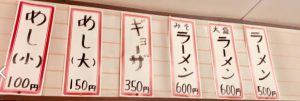 めし(小)
100円
めし(大)
150円
ギョーザ
350円
みそラーメン
600円
大盛ラーメン
600円
ラーメン
500円